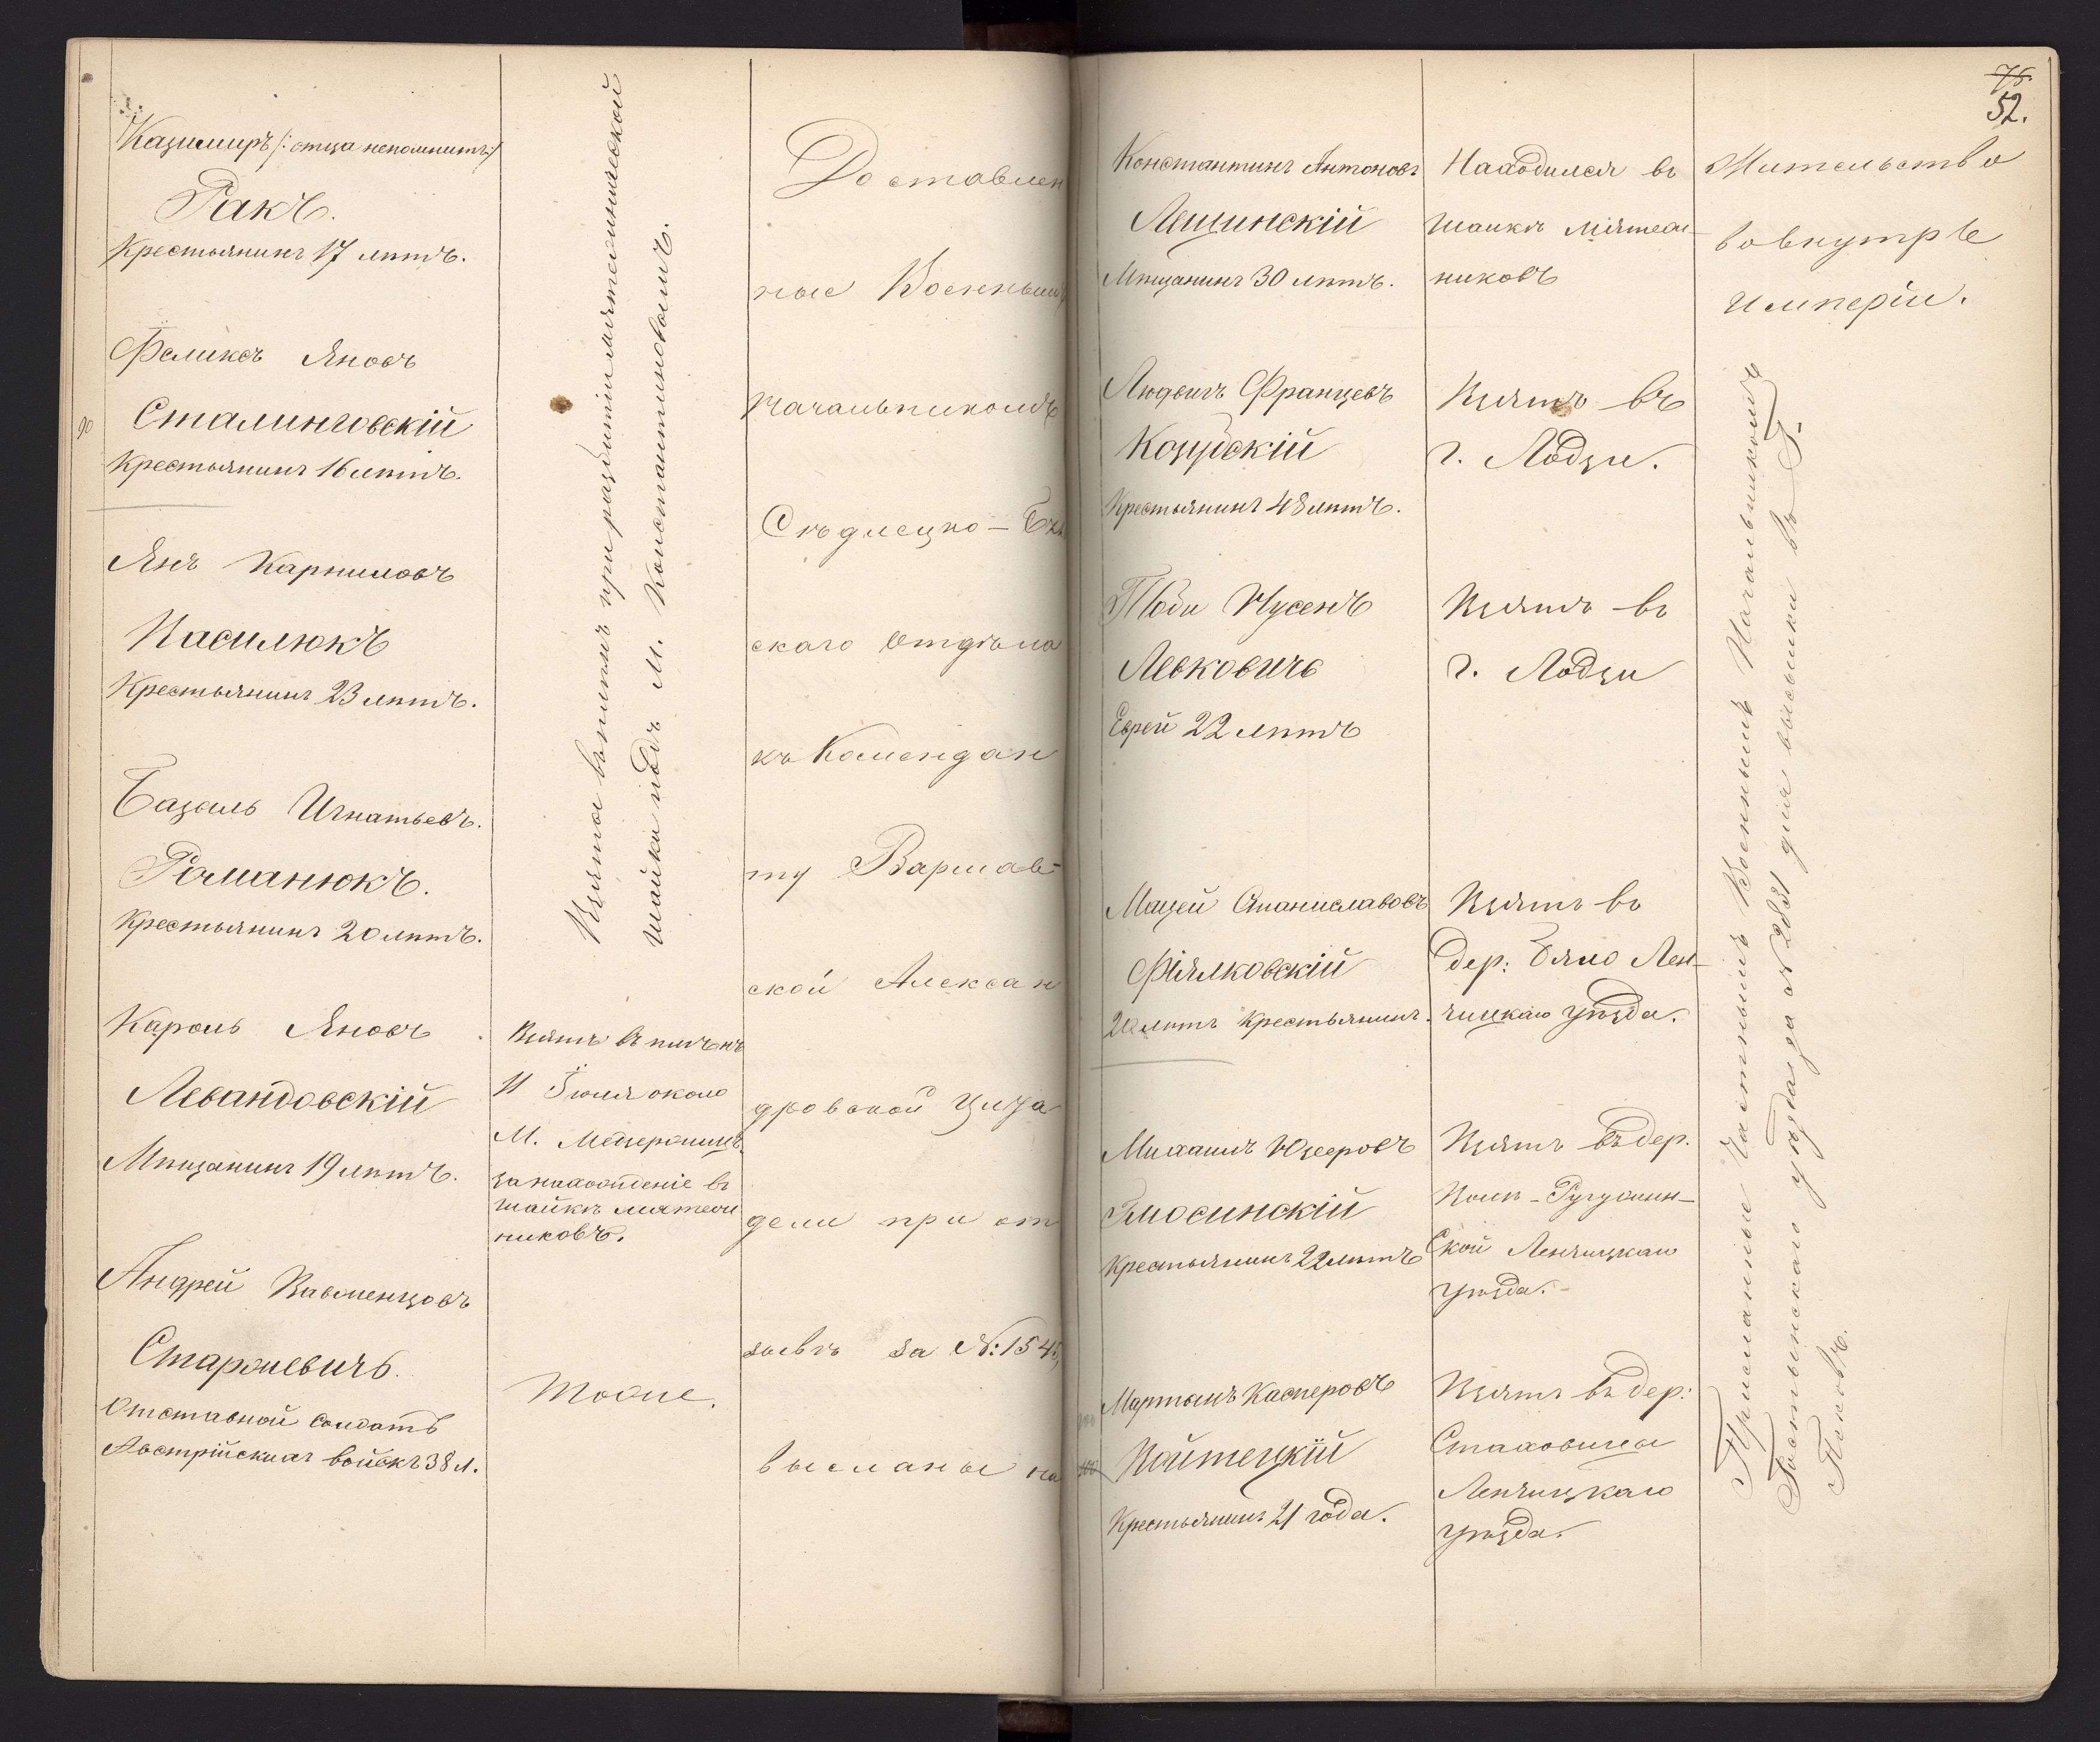 Казимиръ /: отца непомнитъ :/
Ракъ.
Крестьянинъ 17 лѣтъ.
Феликсъ Яновъ
90
Сталинговскій
Крестьянинъ 16 лѣтъ.
Янъ Карниловъ
Василюкъ
Крестьянинъ 23 лѣтъ.
Базыль Игнатьевъ.
Романюкъ.
Крестьянинъ 20 лѣтъ.
Кароль Яновъ
Левандовскій
Мѣщанинъ 19 лѣтъ.
Андрей
Старжевичъ.
Отставной Солдатъ
Австрійскихъ войскъ 38 л.
Взяты въ плѣнъ при разбитіи мятежнической
шайки подъ М. Константиновымъ.
Взятъ въ плѣнъ
11 Іюля около
М.
за нахожденіе въ
шайкѣ мятеж
никовъ.
Тоже.
Доставлен
ные Военнымъ
Начальникомъ
Сѣдлецко-
скаго Отдѣла
къ Комендан
ту Варшав-
ской Алексан
дровской Цита
дели при от
зывѣ за №: 1545,
высланы на
75.
52.
Константинъ Антоновъ
Лещинскій
Мѣщанинъ 30 лѣтъ.
Людвигъ Францевъ
Козубскій
Крестьянинъ 48 лѣтъ.
Нусенъ
Левковичъ
Еврей 22 лѣтъ
Мацей Станиславовъ
Фіялковскій
20 лѣтъ Крестьянинъ.
Михаилъ Юзефовъ
Глосинскій
Крестьянинъ 22 лѣтъ
Мартынъ Касперовъ
100 Войтецкій
Крестьянинъ 21 года.
Находился въ
шайкѣ мятеж-
никовъ
Взятъ въ
г. Лодзи.
Взятъ въ
г. Лодзи
Взятъ въ
дер: Лен-
чицкаго уѣзда.
Взятъ въ дер.
Ской Ленчицкаго
уѣзда.
Взятъ въ дер:
Стаховица
Ленчицкаго
уѣзда.
Жительство
вовнутрь
Имперіи.
Присланные Участнымъ Военнымъ Начальникомъ
Гостынскаго уѣзда за № 2831 для высылки въ Г.
Псковъ.